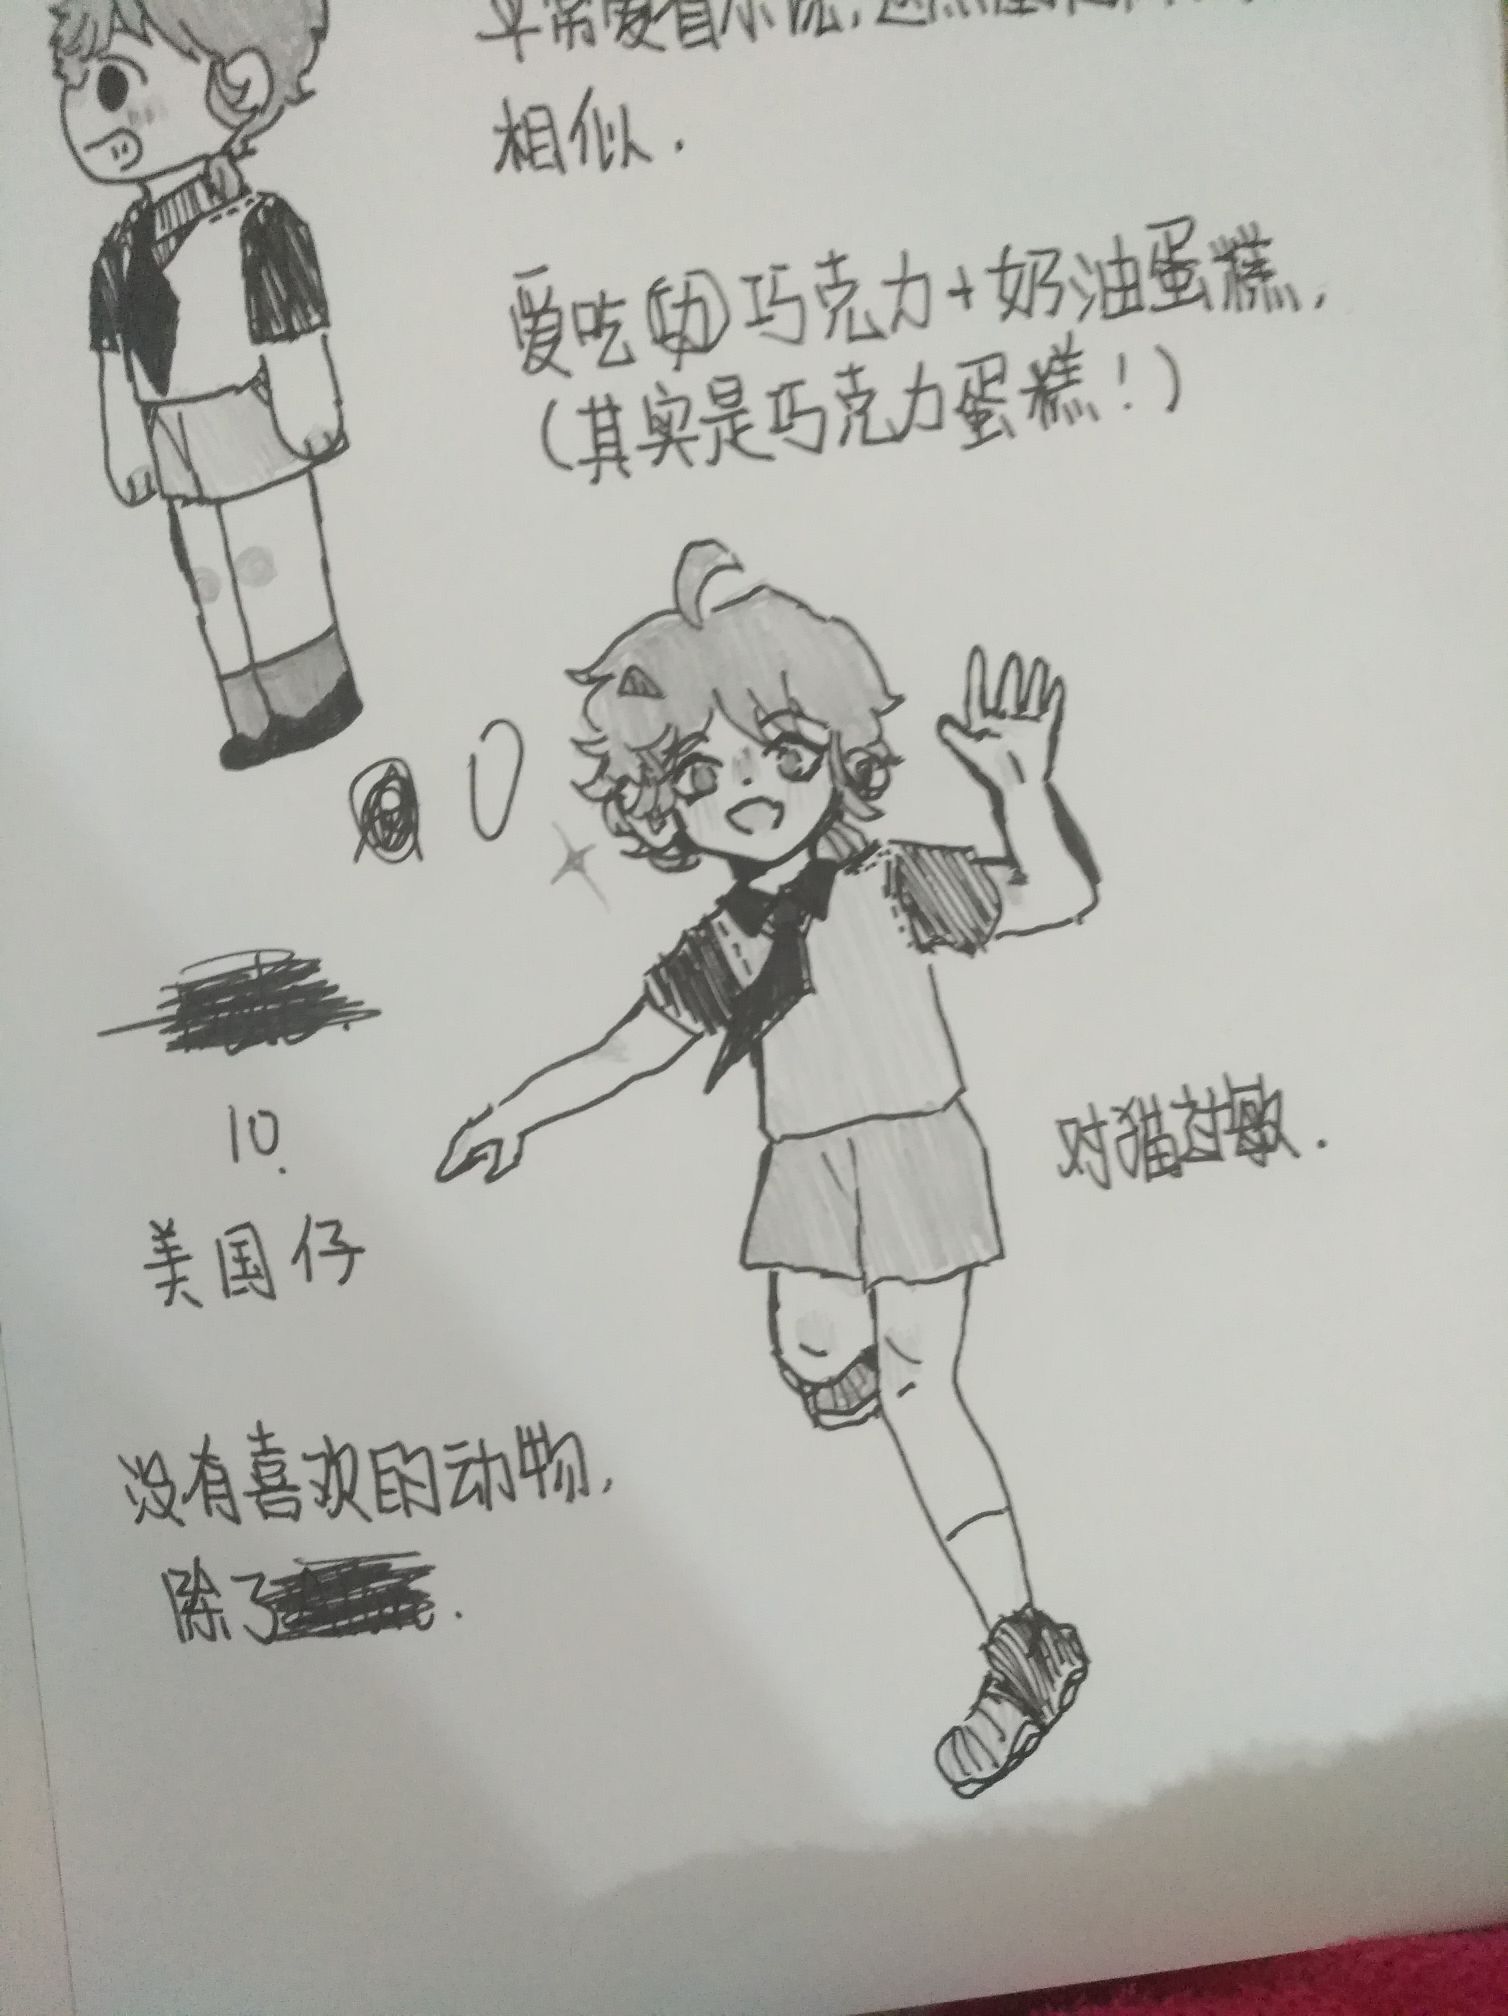 平常爱看小说,这点
相似.
爱吃巧克力+奶油蛋糕,
(其实是巧克力蛋糕!)
对猫过敏.
10.
美国仔
没有喜欢的动物,
除了